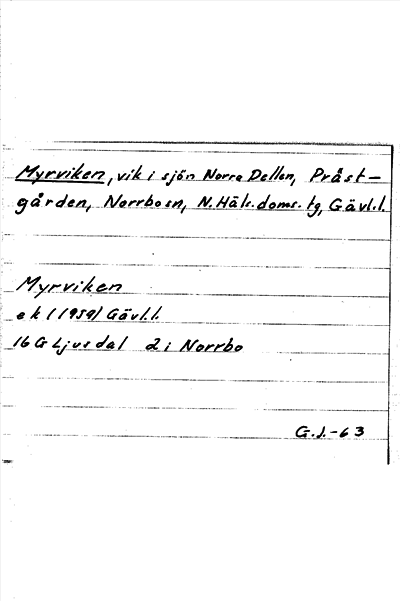 Myrviken, vik i sjön Norra Dellen, Präst-
gården, Norrbosn, N. Häls. doms. tg, Gävl.l.
Myrviken
ek (1959) Gävl.l.
16 G Ljusdal 2 i Norrbo
G.J.-63